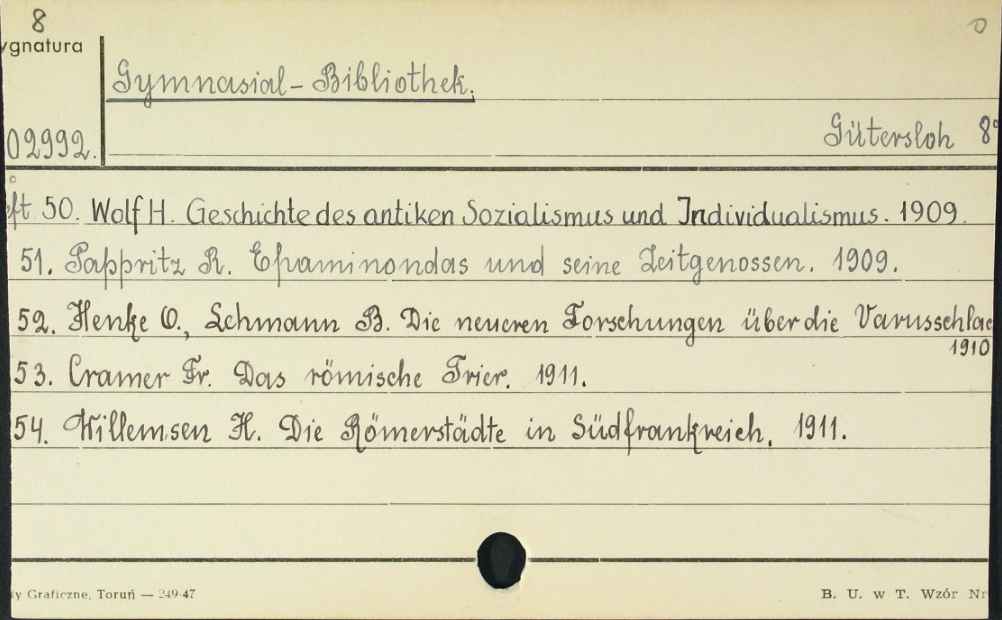 8
ygnatura
Gymnasial-Bibliothek.
02992.
Gütersloh 8°
eft 50. Wolf H. Geschichte des antiken Sozialismus und Individualismus. 1909.
51. Pappritz R. Epaminondas und seine Zeitgenossen. 1909.
52. Henke O., Lehmann B. Die neueren Forschungen über die Varusschlac
1910
53. Cramer Fr. Das römische Trier. 1911.
54. Willemsen H. Die Römerstädte in Südfrankreich. 1911.
y Graficzne, Toruń — 249-47
B. U. w T. Wzór Nr